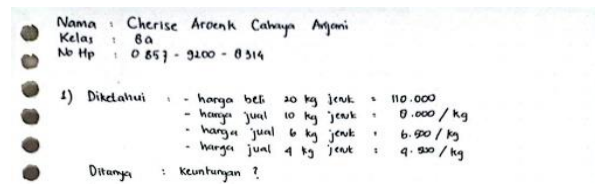 Nama : Cherise Aroenk Cahaya Anjani
Kelas : 8a
No Hp : 0857 - 9200 - 8314
1) Diketahui : - harga beli 20 kg jeruk : 110.000
- harga jual 10 kg jeruk : 8.000 / kg
- harga jual 6 kg jeruk : 6.500 / kg
- harga jual 4 kg jeruk : 4.500 / kg
Ditanya : Keuntungan ?